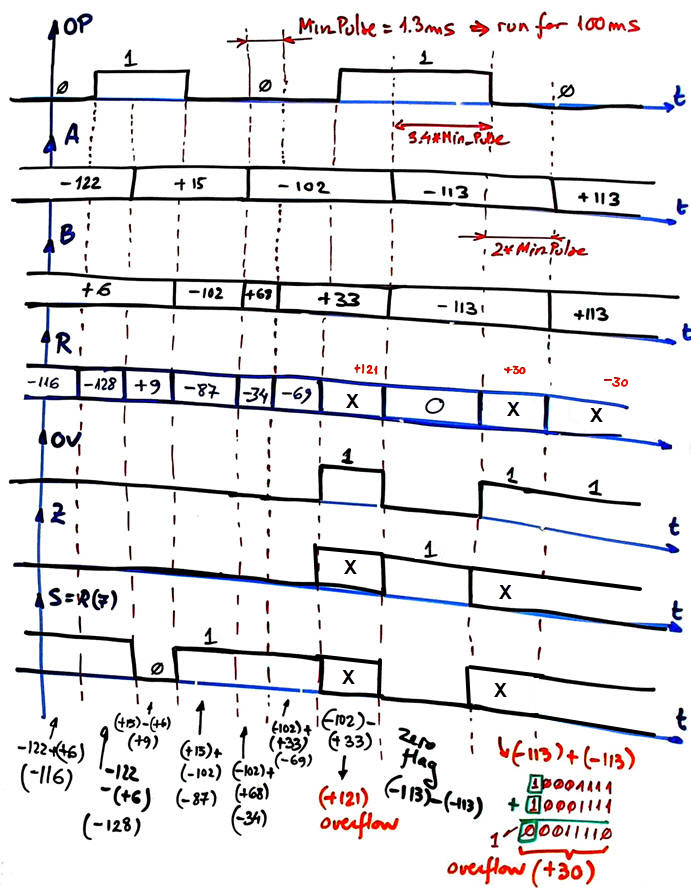 OP
Min_Pulse = 1.3ms ⇒ run for 100ms
Ø 1 Ø 1 Ø t
3.4*Min_Pulse
A
-122 +15 -102 -113 +113
t
B
2*Min_Pulse
+6 -102 +68 +33 -113 +113
t
R
+121 +30 -30
-116 -128 +9 -87 -34 -69 X 0 X X
t
OV
1 1 1
t
Z
X 1 X
t
S=R(7)
1 Ø X X
t
-122+(+6)
(-116)
-122
-(+6)
(-128)
(+15)-(+6)
(+9)
(+15)+
(-102)
(-87)
(-102)+
(+68)
(-34)
(-102)+
(+33)
(-69)
(-102)-
(+33)
(+121)
overflow
Zero
flag
(-113)-(-113)
(-113)+(-113)
10001111
+ 10001111
1 00011110
overflow (+30)